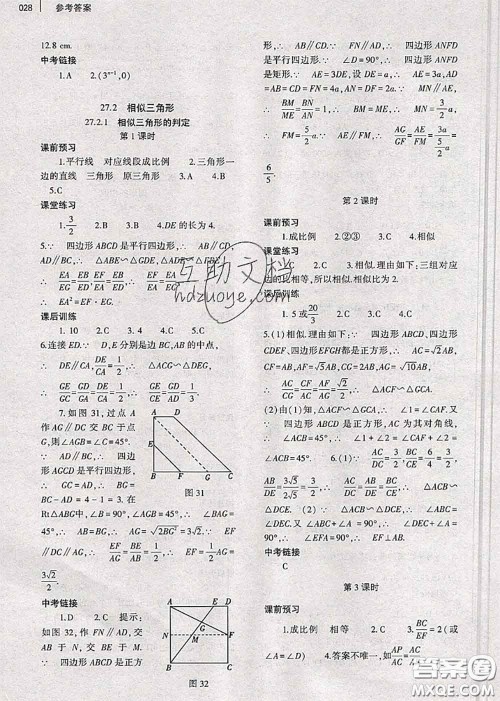 028 参考答案
12.8 cm.
中考链接
1.A 2.(3ⁿ⁻¹,0)
27.2 相似三角形
27.2.1 相似三角形的判定
第 1 课时
课前预习
1.平行线 对应线段成比例 2.三角形一
边的直线 三角形 原三角形 3.C 4.B
5.C
课堂练习
1.3/2 2.B 3.A 4.DE 的长为 4.
5.∵ 四边形 ABCD 是平行四边形,∴ AB∥CD,
EA/EG=EB/ED,EF/EA=EB/ED,∴ EA/EG=EF/EA,
∴ EA²=EF·EG.
课后训练
1.10 2.C 3.4 4.C 5.C
6.连接 ED.∵ D,E 分别是边 BC,AB 的中点,
∴ DE∥CA,DE/AC=1/2,∴ △ACG∽△DEG,
∴ GE/GC=GD/GA=DE/AC=1/2,∴ GE/CE=GD/AD=1/3.
7.如图 31,过点 A
作 AG∥DC 交 BC 于点
G,则∠AGB=∠C=45°.
∵ AD∥BC,∴ 四边
形 AGCD 是平行四边形,
∴ GC=AD=1,∴ BG=
BC-AD=4-1=3.在
Rt△ABG中,∠B=90°,∠AGB=45°,∴ ∠BAG
=45°,∴ AB=BG=3,∴ AG=√(2BG²)=3√2.∵ EF
∥DC∥AG,∴ EF/AG=BE/BA=1/2,∴ EF=1/2AG=
3√2/2.
图 31
中考链接
1.D 2.C 提示:
如图 32,作 FN∥AD,交
AB 于 N,交 BE 于 M.
∵ 四边形 ABCD 是正方
图 32
形,∴ AB∥CD.∵ FN∥AD,∴ 四边形 ANFD
是平行四边形.∵ ∠D=90°,∴ 四边形 ANFD
是矩形.∵ AE=3DE,设 DE=a,∴ AE=3a,
AD=AB=CD=FN=4a,AN=DF=2a.∵ AN=
∴ BM/ME=BN/AN=1,∴ MN=3/2a,
∴ FM=5/2a.∵ AE∥FM,∴ AG/GF=AE/FM=3a/(5/2a)=
6/5.
第 2 课时
课前预习
1.成比例 2.②③ 3.C 4.相似
课堂练习
1.C 2.C 3.相似.理由如下:三组对应
边的比相等,所以相似.
课后训练
1.5 或20/3 2.C 3.C 4.B
5.(1)相似.理由如下:∵ 四边形 ABCD、四边形
CDEF、四边形 都是正方形,∴ AC=√2AB,
CF=AB,AF=√5AB,CG=2AB,AG=√10AB,
∴ AC/CG=CF/AC=AF/AG=√2/2,∴ △ACF∽△GCA.
(2)由(1)知,△ACF∽△GCA,∴ ∠1=∠CAF.又
∵ 四边形 ABCD 是正方形,AC 为其对角线,
∴ ∠ACB=45°,∴ ∠1+∠2=∠CAF+∠2=
∠ACB=45°. 6.(1)∵ AC/DC=3/2,BC/CE=6/4=3/2,
AB/DE=3√5/2√5=3/2,∴ AC/DC=BC/CE=AB/DE,∴ △ABC∽
△DCE. (2)∵ △ABC∽△DCE,∴ ∠A=∠D.又
∵ ∠ACB=90°,∴ ∠B+∠A=90°,∴ ∠B+∠D
=90°,∴ ∠EFA=90°,∴ ∠BFD=90°.
中考链接
C
第 3 课时
课前预习
1.成比例 相等 2.C 3.BC/EF=2(或
∠A=∠D) 4.答案不唯一,如AP/AC=
互助文档
hdzuoye.com
答案圈
MXQE.COM